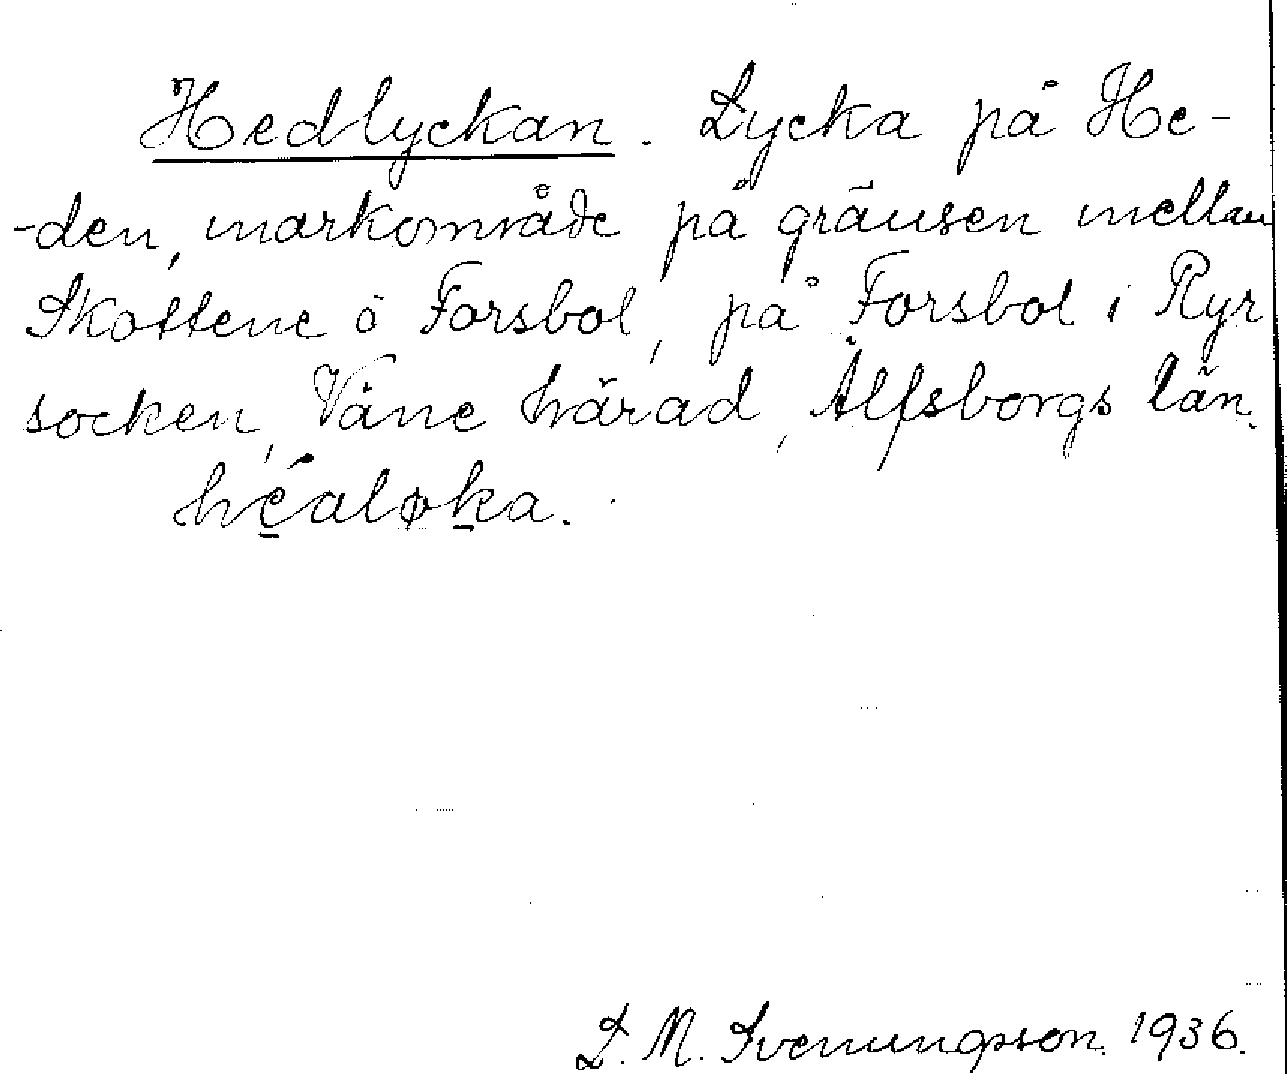 Hedlyckan. Lycka på He-
-den, markområde på gränsen mellan
Skottene ö Forsbol, på Forsbol i Ryr
socken, Väne härad, Älfsborgs län.
hé̱aløḵa.
L. M. Svenungsson. 1936.